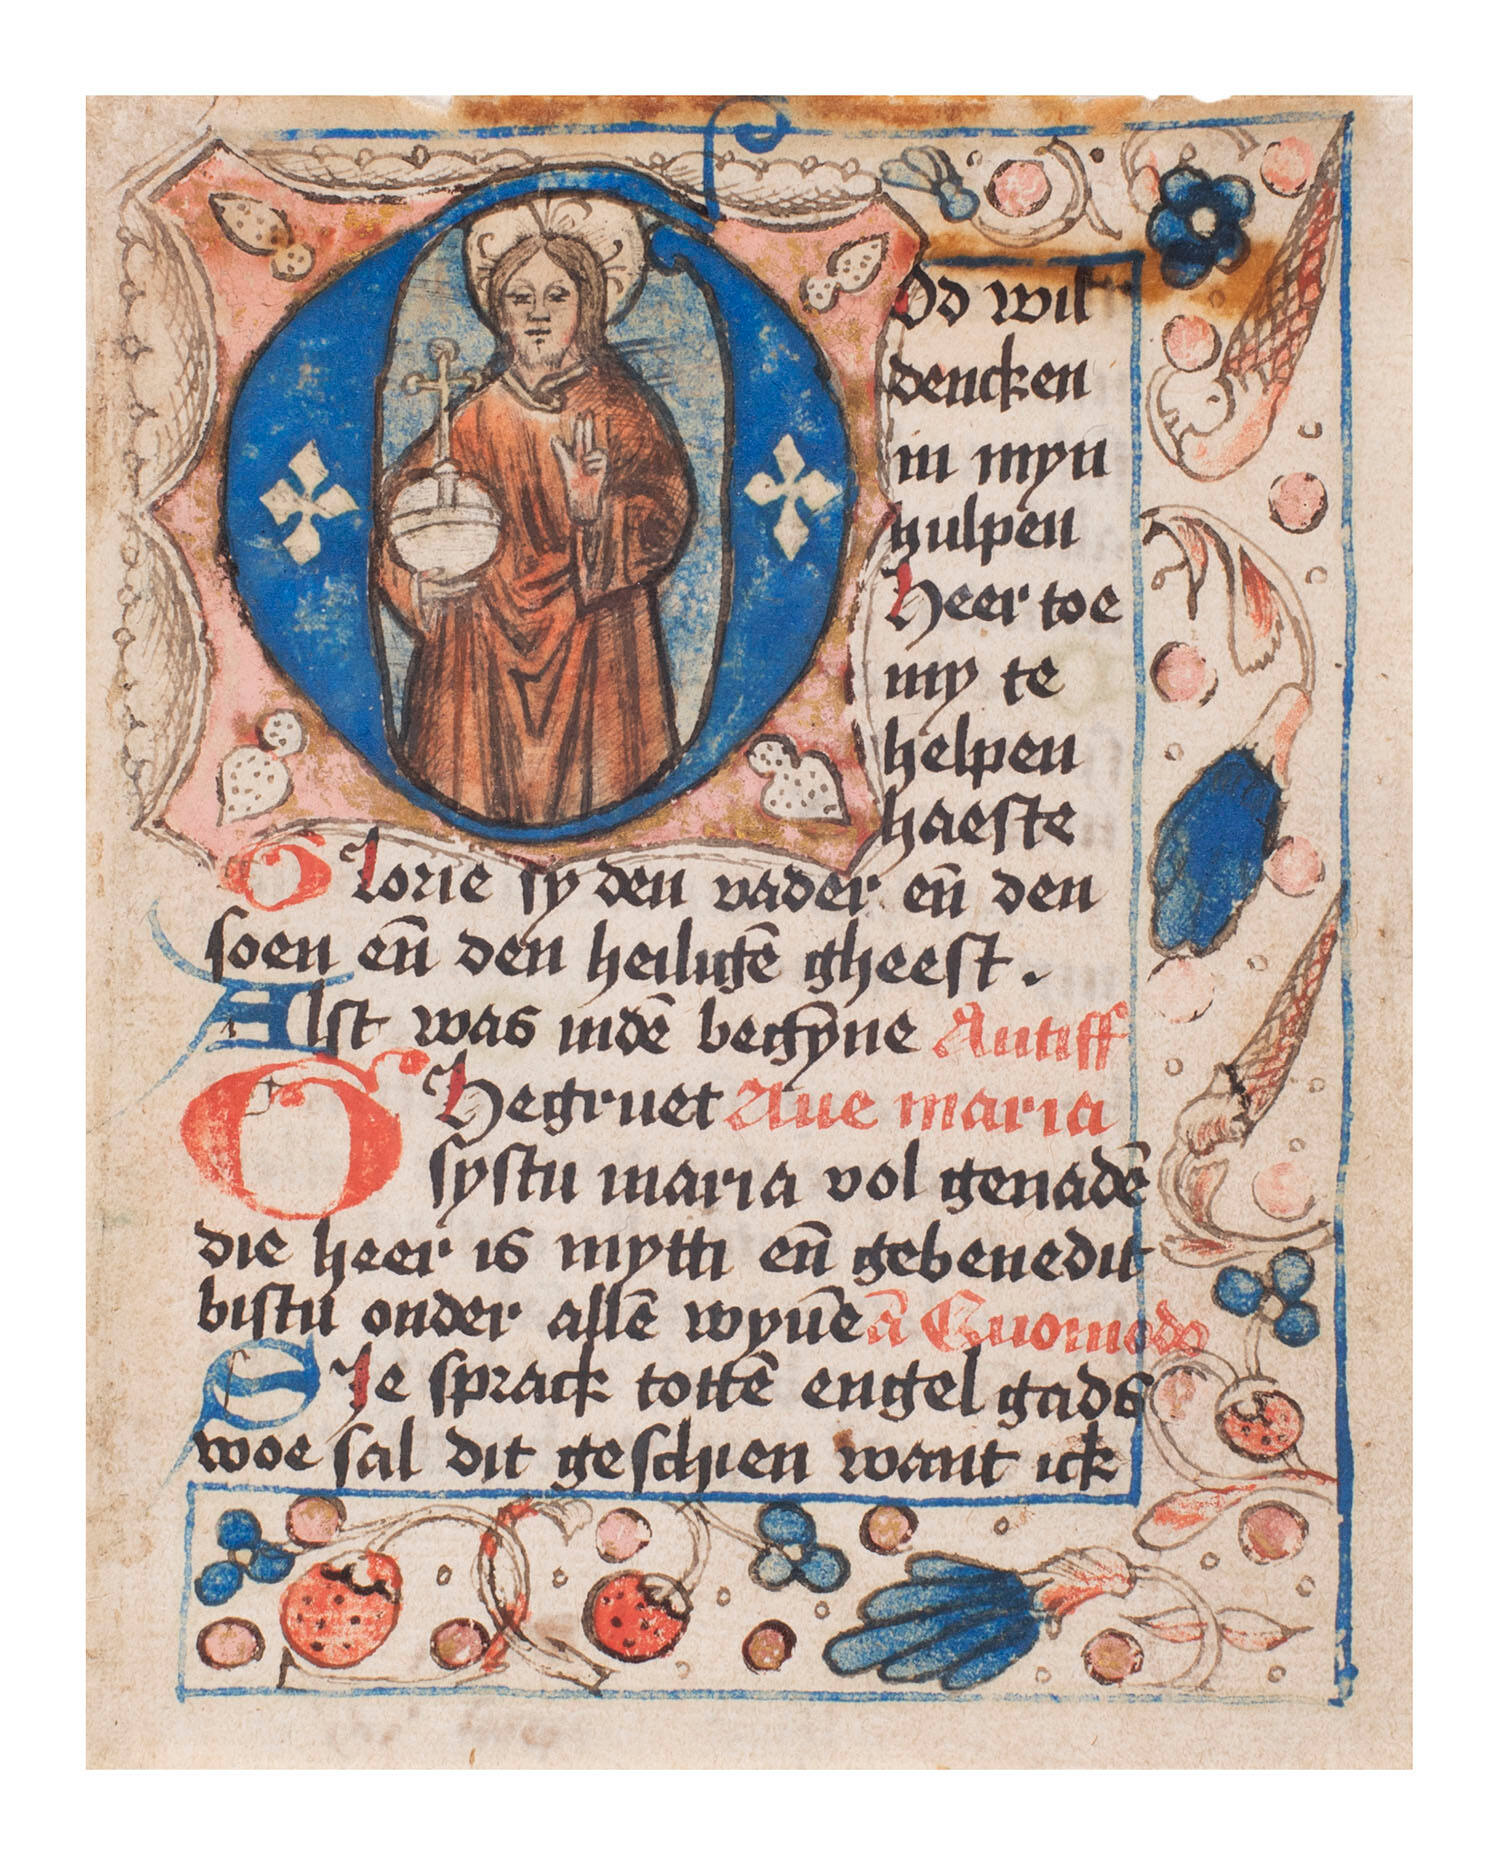 God wil
dencken
in myn
hulpen
Heer toe
my te
helpen
haeste
Glorie sy den vader en̄ den
soen en̄ den heiligē gheest.
Alst was indē begȳne Antiff
Ghegruet Aue maria
systu maria vol genadē
die heer is mytti en̄ gebenedit
bistu onder allē wyuē ā Quomodo
Sie sprack tottē engel gads
woe sal dit geschien want ick